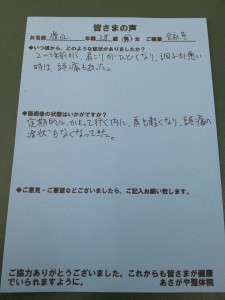 皆さまの声
お名前 年齢 28 歳 (男) 女 ご職業 会社員
◆いつ頃から、どのような症状がありましたか?
2〜3年前から、肩こりがひどくなり、調子が悪い
時は、頭痛もあった。
◆施術後の状態はいかがですか?
定期的に、かよって行く内に、肩も軽くなり、頭痛の
症状もなくなってきた。
◆ご意見・ご要望などございましたら、ご記入お願い致します。
ご協力ありがとうございました。これからも皆さまが健康
でいられますように。 あさがや整体院